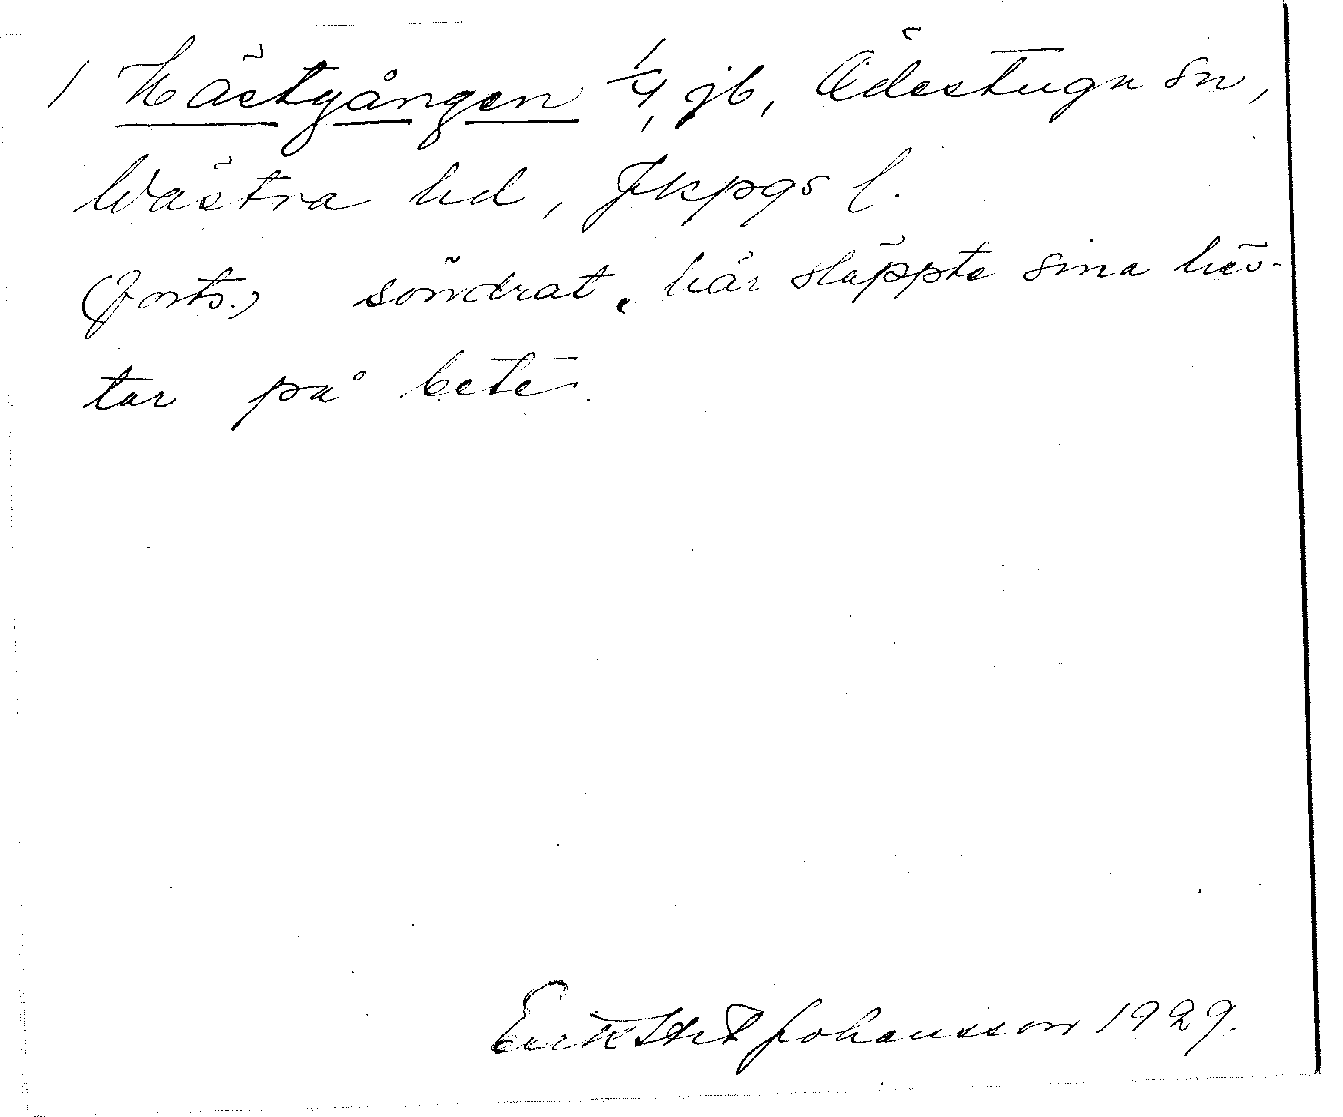 1 Hästgången 1/4, jb, Ödestugu sn,
Västra hd, Jkpgs l.
(forts.) söndrat, här släppte sina häs-
tar på bete.
Erik Johansson 1929.